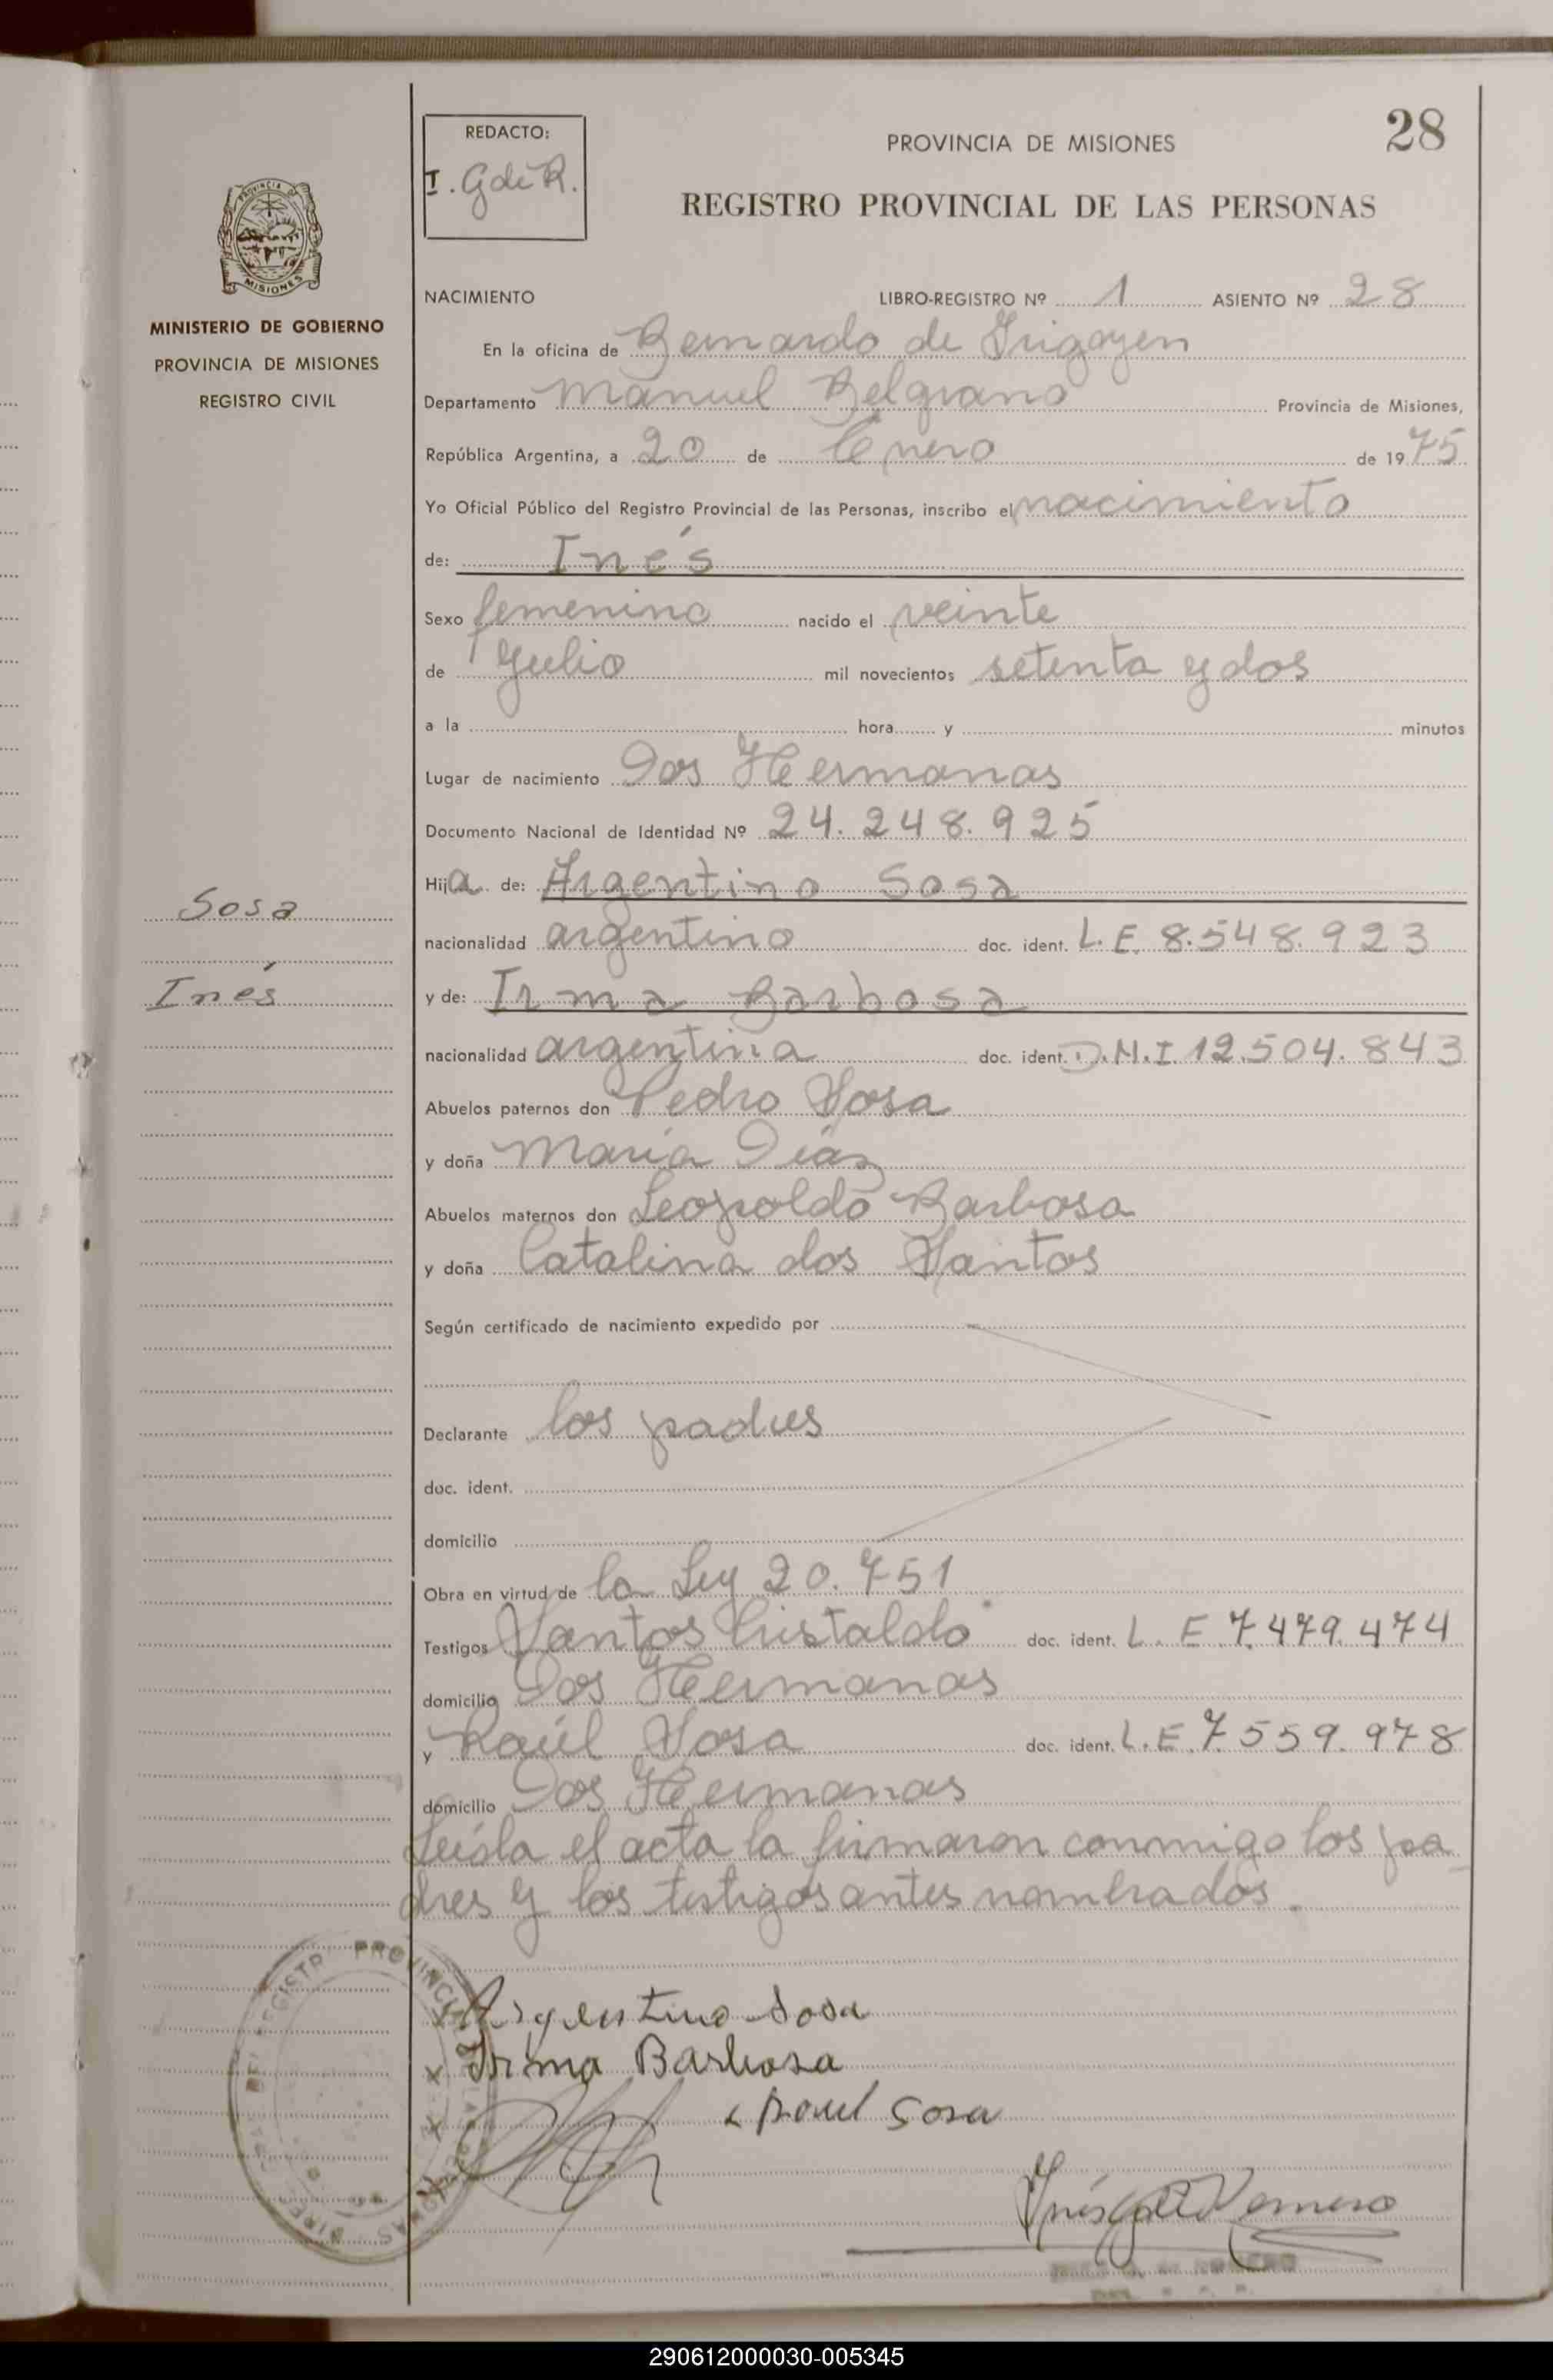 28
REDACTO:
I. G de R.
PROVINCIA DE MISIONES
REGISTRO PROVINCIAL DE LAS PERSONAS
PROVINCIA DE
MISIONES
MINISTERIO DE GOBIERNO
PROVINCIA DE MISIONES
REGISTRO CIVIL
NACIMIENTO LIBRO-REGISTRO Nº 1 ASIENTO Nº 28
En la oficina de Bernardo de Irigoyen
Departamento Manuel Belgrano Provincia de Misiones,
República Argentina, a 20 de Enero de 1975
Yo Oficial Público del Registro Provincial de las Personas, inscribo el nacimiento
de: Inés
Sexo femenino nacido el veinte
de Julio mil novecientos setenta y dos
a la hora y minutos
Lugar de nacimiento Dos Hermanas
Documento Nacional de Identidad Nº 24.248.925
Hija de: Argentino Sosa
Sosa
nacionalidad argentino doc. ident. L.E. 8.548.923
Inés
y de: Irma Barbosa
nacionalidad argentina doc. ident. D.N.I 12.504.843
Abuelos paternos don Pedro Sosa
y doña María Díaz
Abuelos maternos don Leopoldo Barbosa
y doña Catalina dos Santos
Según certificado de nacimiento expedido por
Declarante los padres
doc. ident.
domicilio
Obra en virtud de la Ley 20.751
Testigos Santos Cristaldo doc. ident. L. E 7.479.474
domicilio Dos Hermanas
y Raúl Sosa doc. ident. L.E. 7.559.978
domicilio Dos Hermanas
Leída el acta la firmaron conmigo los pa
dres y los testigos antes nombrados.
Argentino Sosa
x Irma Barbosa
x Raul Sosa
290612000030-005345